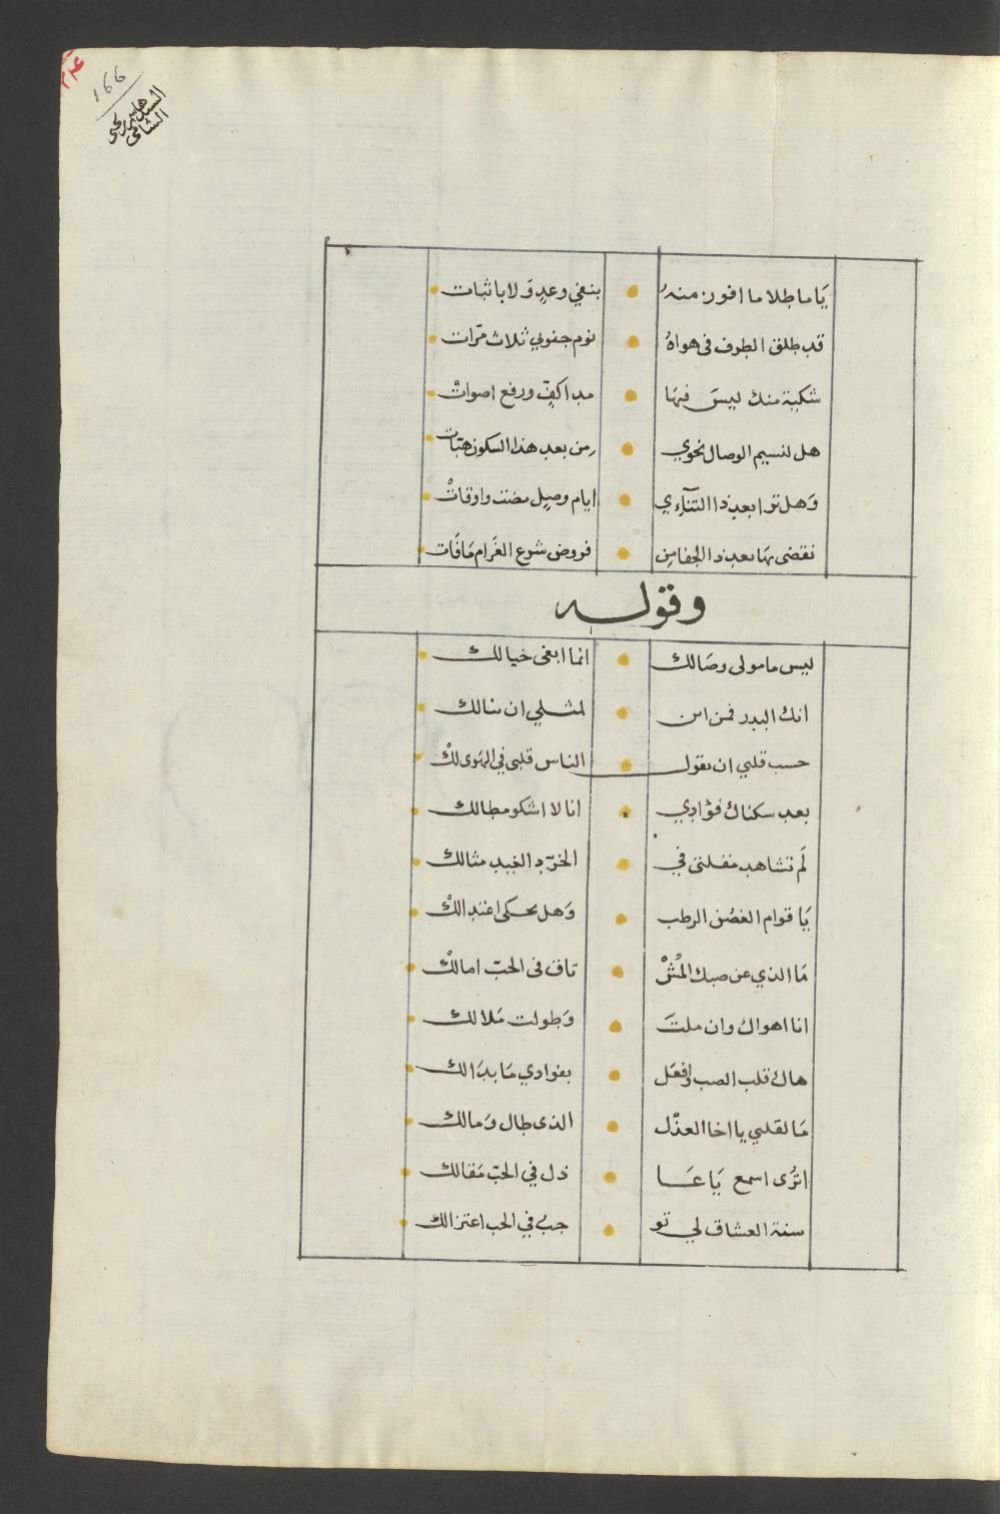 ١٦٦
السيد هاشم بن يحيى
الشامي
يَا ماطلا ما افوز منهُ بنفي وعدٍ وَلا باثبات
قد طلق الطرف فى هواهُ نوم جفوني ثلاث مرّات
شكية منك ليسَ فيهَا مد اكفٍّ ورفع اصواتْ
هل لنسيم الوصال نحوي من بعد هذا السكون هبّات
وَهل ترا بعد ذا التنآءي ايام وصلٍ مضت واوقاتْ
نقضى بهَا بعد ذا الجفا من فروض شرع الغَرام مَا فَات
وقوله
ليس مامولى وصَالك انما ابغى خيالك
انك البدر فمن اين لمثلي ان ينالك
حسب قلبي ان يقول الناس قلبى في الهَوى لكْ
بعد سكناك فؤادي انا لا اشكو مطالك
لَم تشاهد مقلتى في الخرّد الغيد مثالك
يَا قوام الغصْن الرطب وَهل يحكى اعتدالكْ
مَا الذي عن صبك المُثْرْ تاق فى الحبّ امالكْ
انا اهواك وان ملتَ وَطولت مَلالك
هاك قلب الصب وافعَل بفوادي مَا بدَا لك
مَا لقلبي يا اخا العذّل الذى طال وَمالك
اترُى اسمع يَا عَا ذل في الحبّ مَقالك
سنة العشاق لي تو جب في الحب اعتزالك